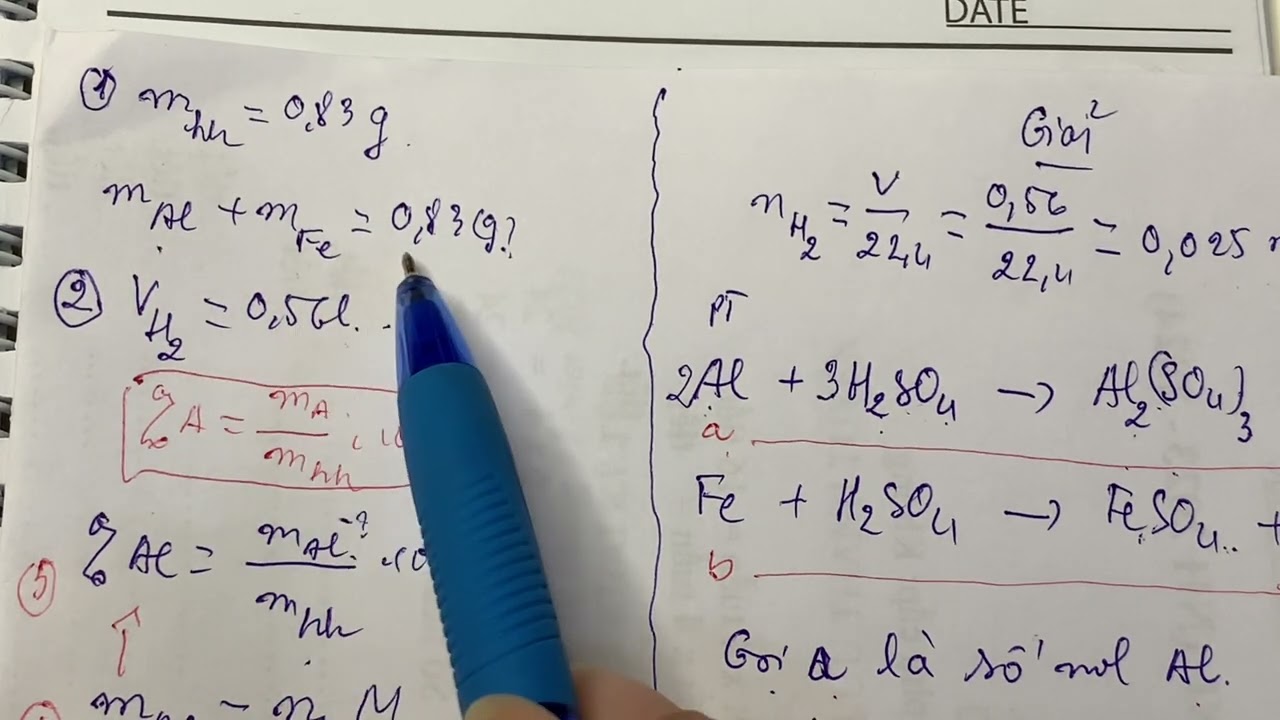 DATE
① m_hh = 0,83 g.
m_Al + m_Fe = 0,83 (g).
② V_H₂ = 0,56 l.
% A = m_A / m_hh . 10
⑤ % Al = m_Al ? / m_hh . 10
Giải
n_H₂ = V / 22,4 = 0,56 / 22,4 = 0,025
PT
2Al + 3H₂SO₄ → Al₂(SO₄)₃
a
Fe + H₂SO₄ → FeSO₄ +
b
Gọi a là số mol Al.